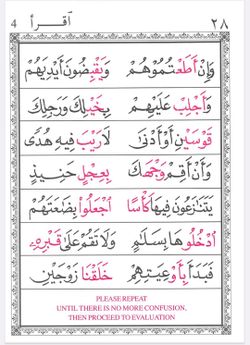 ٢٨ اقرأ 4
وَإِنْ أَطَعْتُمُوهُمْ وَيَقْبِضُونَ أَيْدِيَهُمْ
وَأَجْلِبْ عَلَيْهِمْ بِخَيْلِكَ وَرَجِلِكَ
قَوْسَيْنِ أَوْ أَدْنَى لَا رَيْبَ فِيهِ هُدًى
وَأَنْ أَقِمْ وَجْهَكَ بِعِجْلٍ حَنِيذٍ
يَتَنَازَعُونَ فِيهَا كَأْسًا اجْعَلُوا بِضَاعَتَهُمْ
ادْخُلُوهَا بِسَلَامٍ وَلَا تَقُمْ عَلَى قَبْرِهِ
فَبَدَأَ بِأَوْعِيَتِهِمْ خَلَقْنَا زَوْجَيْنِ
PLEASE REPEAT
UNTIL THERE IS NO MORE CONFUSION,
THEN PROCEED TO EVALUATION